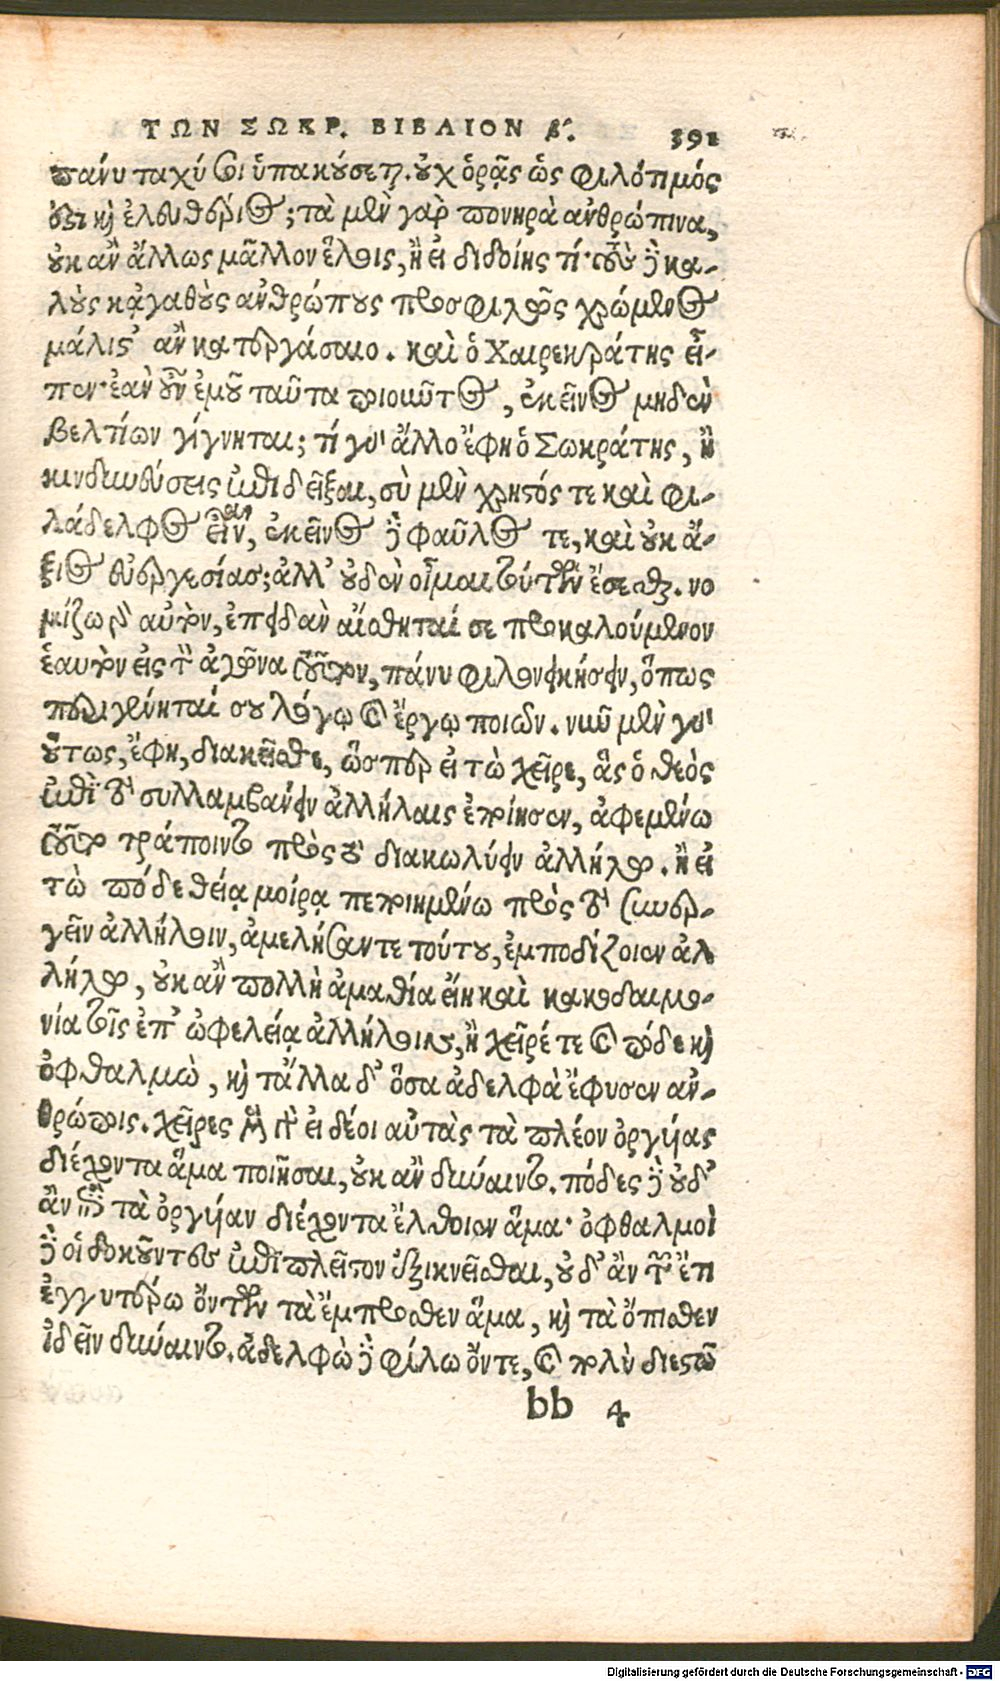 ΤΩΝ ΣΩΚΡ. ΒΙΒΛΙΟΝ β΄. 391
πάνυ ταχύ σοι ὑπακούσεται. οὐχ ὁρᾷς ὡς φιλότιμός
ὅτι καὶ ἐλευθέριος; τὰ μὲν γὰρ πονηρὰ ἀνθρώπινα,
οὐκ ἂν ἄλλως μᾶλλον ἕλοις, ἢ εἰ διδοίης τί· τοὺς δὲ κα-
λοὺς κἀγαθοὺς ἀνθρώπους προσφιλῶς χρώμενος
μάλιστ’ ἂν κατεργάσαιο. καὶ ὁ Χαιρεκράτης εἶ-
πεν· ἐὰν οὖν ἐμοῦ ταῦτα ποιοῦντος, ἐκεῖνος μηδὲν
βελτίων γίγνηται; τί γὰρ ἄλλο ἔφη ὁ Σωκράτης, ἢ
κινδυνεύσεις ἐπιδεῖξαι, σὺ μὲν χρηστός τε καὶ φι-
λάδελφος εἶναι, ἐκεῖνος δὲ φαῦλός τε, καὶ οὐκ ἄ-
ξιος εὐεργεσίας; ἀλλ’ οὐδὲν οἶμαι τούτων ἔσεσθαι. νο
μίζω γὰρ αὐτὸν, ἐπειδὰν αἴσθηταί σε προκαλούμενον
ἑαυτὸν εἰς τὸν ἀγῶνα τοῦτον, πάνυ φιλονεικήσειν, ὅπως
περιγένηταί σου λόγῳ καὶ ἔργῳ ποιῶν. νῦν μὲν γὰρ
οὕτως, ἔφη, διάκεισθε, ὥσπερ εἰ τὼ χεῖρε, ἃς ὁ θεὸς
ἐπὶ τὸ συλλαμβάνειν ἀλλήλαις ἐποίησεν, ἀφεμένω
τούτου τράποιντο πρὸς τὸ διακωλύειν ἀλλήλω. ἢ εἰ
τὼ πόδε θείᾳ μοίρᾳ πεποιημένω πρὸς τὸ συνερ-
γεῖν ἀλλήλοιν, ἀμελήσαντε τούτου, ἐμποδίζοιεν ἀλ
λήλω, οὐκ ἂν πολλὴ ἀμαθία εἴη καὶ κακοδαιμο-
νία τοῖς ἐπ’ ὠφελείᾳ ἀλλήλοις, ἢ χεῖρέ τε καὶ πόδε καὶ
ὀφθαλμὼ, καὶ τἄλλα δ’ ὅσα ἀδελφὰ ἔφυσεν ἀν-
θρώποις. χεῖρες μὲν γὰρ εἰ δέοι αὐτὰς τὰ πλέον ὀργυιᾶς
διέχοντα ἅμα ποιῆσαι, οὐκ ἂν δύναιντο. πόδες δὲ οὐδ’
ἂν ἐπὶ τὰ ὀργυιὰν διέχοντα ἔλθοιεν ἅμα· ὀφθαλμοὶ
δὲ οἱ δοκοῦντες ἐπὶ πλεῖστον ἐξικνεῖσθαι, οὐδ’ ἂν τῶν ἔτι
ἐγγυτέρω ὄντων τὰ ἔμπροσθεν ἅμα, καὶ τὰ ὄπισθεν
ἰδεῖν δύναιντο. ἀδελφὼ δὲ φίλω ὄντε, καὶ πολὺ διεστῶ
bb 4
Digitalisierung gefördert durch die Deutsche Forschungsgemeinschaft - DFG